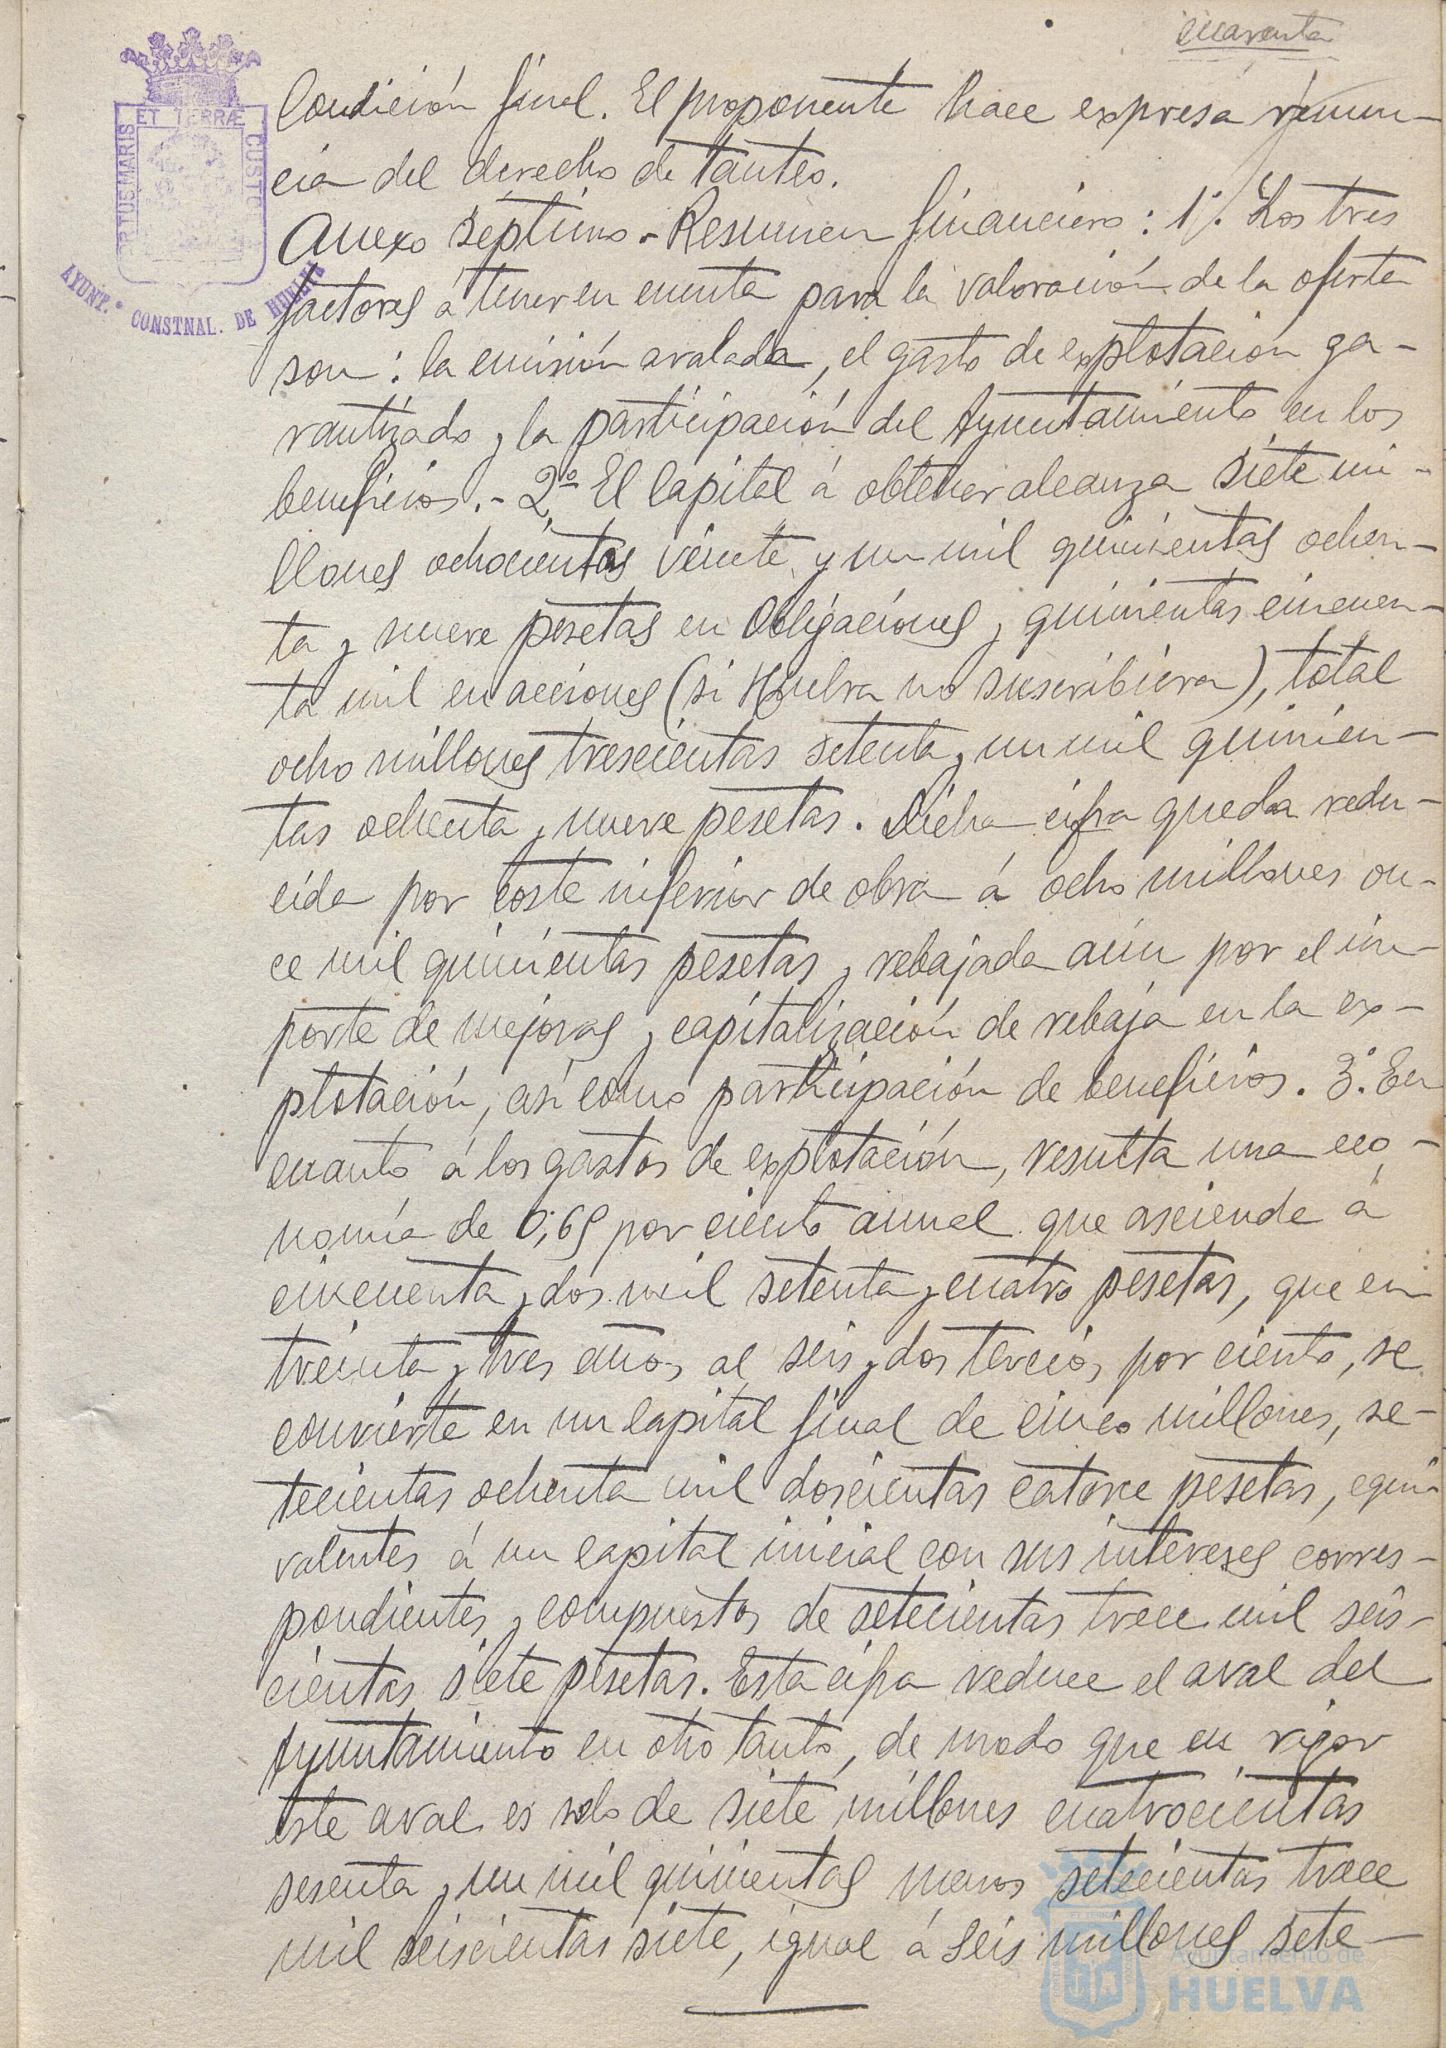 cuarenta
PORTUS MARIS ET TERRÆ CUSTODIA
AYUNT.º CONSTNAL. DE HUELVA
Condición final. El proponente hace expresa renun-
cia del derecho de tanteo.
Anexo séptimo.- Resumen financiero: 1º. Los tres
factores á tener en cuenta para la valoración de la oferta
son: la emisión avalada, el gasto de explotación ga-
rantizado y la participación del Ayuntamiento en los
beneficios.- 2º El capital á obtener alcanza siete mi-
llones ochocientas veinte y un mil quinientas ochen-
ta y nueve pesetas en Obligaciones y quinientas cincuen-
ta mil en acciones (si Huelva no suscribiera), total
ocho millones trescientas setenta y un mil quinien-
tas ochenta y nueve pesetas. Dicha cifra queda redu-
cida por coste inferior de obra á ocho millones on-
ce mil quinientas pesetas y rebajada aún por el im-
porte de mejoras y capitalización de rebaja en la ex-
plotación, así como participación de beneficios. 3º. En
cuanto á los gastos de explotación, resulta una eco-
nomía de 0,65 por ciento anual que asciende á
cincuenta y dos mil setenta y cuatro pesetas, que en
treinta y tres años al seis y dos tercios por ciento, se
convierte en un capital final de cinco millones, se-
tecientas ochenta mil doscientas catorce pesetas, equi-
valentes á un capital inicial con sus intereses corres-
pondientes y compuestos de setecientas trece mil seis-
cientas siete pesetas. Esta cifra reduce el aval del
Ayuntamiento en otro tanto, de modo que en rigor
este aval es solo de siete millones cuatrocientas
sesenta y un mil quinientas menos setecientas trece
mil seiscientas siete, igual á seis millones sete-
Ayuntamiento de
HUELVA